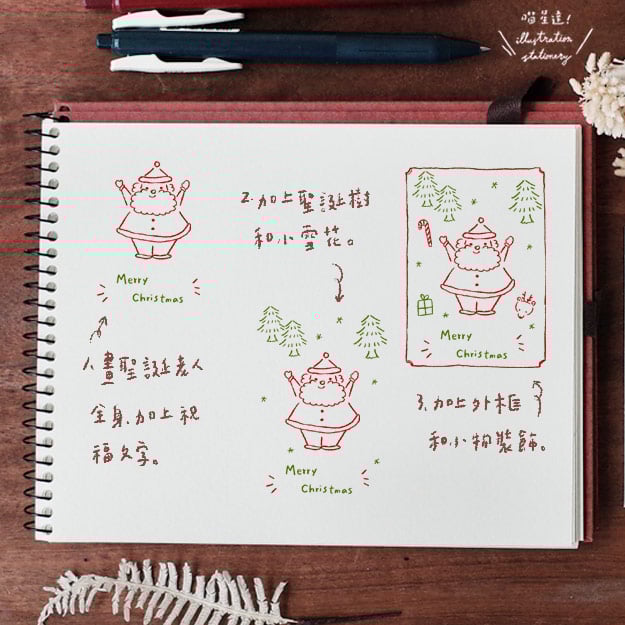 喵星達!
illustration
stationery
Merry
Christmas
1、畫聖誕老人
全身、加上祝
福文字。
2、加上聖誕樹
和小雪花。
Merry
Christmas
Merry
Christmas
3、加上外框
和小物裝飾。